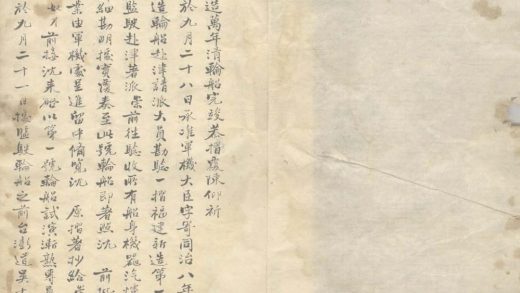 造萬年清輪船完竣恭摺覆陳仰祈
於九月二十八日承准軍機大臣字寄同治八年
造輪船赴津請派大員勘驗一摺福建新造第一
監駛赴津著派崇前往驗收所有船身機器汽機
細勘明據實覆奏至此號輪船即著照沈 前
業由軍機處呈進留中備覽沈 原摺著抄給
前接沈來咨以第一號輪船試演漸熟專
於九月二十一日據監駛輪船之前台澎道吳大